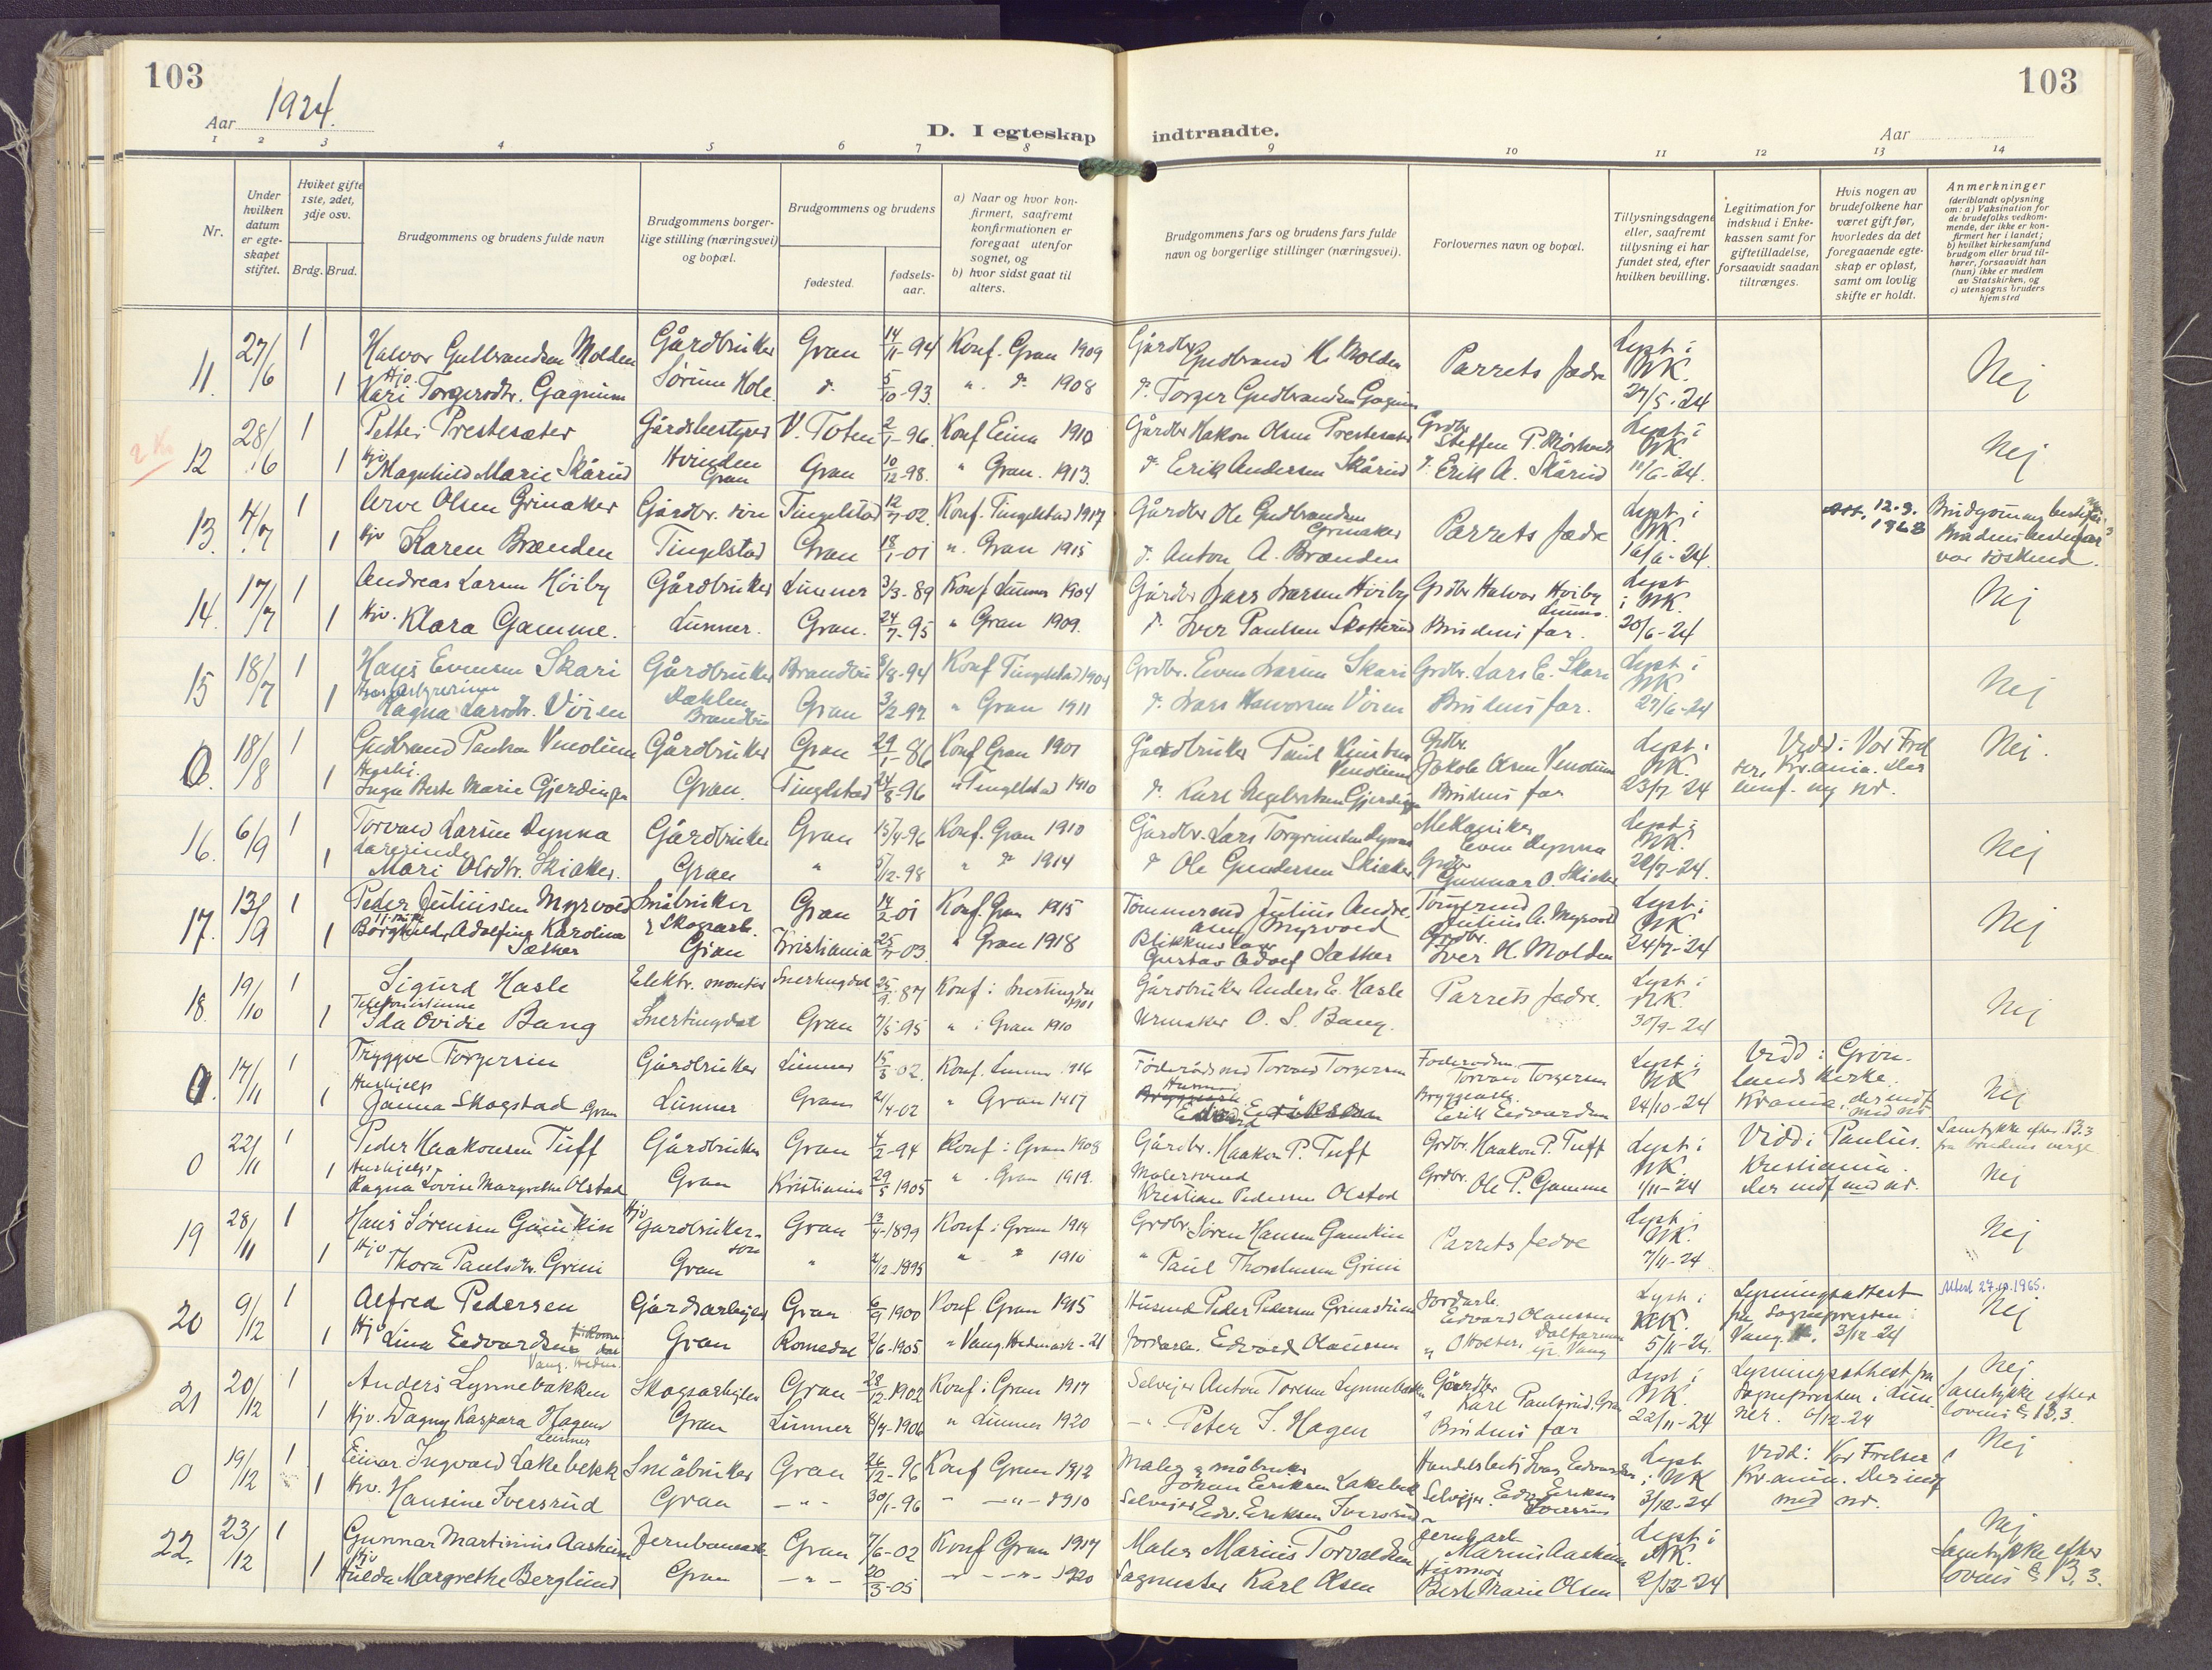 103
103
Aar 1924.
D. I egteskap indtraadte.
Aar
1 2 3 4 5 6 7 8 9 10 11 12 13 14
Nr.
Under hvilken datum er egteskapet stiftet.
Hviket gifte 1ste, 2det, 3dje osv.
Brdg. Brud.
Brudgommens og brudens fulde navn
Brudgommens borgerlige stilling (næringsvei) og bopæl.
Brudgommens og brudens
fødested.
fødselsaar.
a) Naar og hvor konfirmert, saafremt konfirmationen er foregaat utenfor sognet, og
b) hvor sidst gaat til alters.
Brudgommens fars og brudens fars fulde navn og borgerlige stillinger (næringsvei).
Forlovernes navn og bopæl.
Tillysningsdagene eller, saafremt tillysning ei har fundet sted, efter hvilken bevilling.
Legitimation for indskud i Enkekassen samt for giftetilladelse, forsaavidt saadan tiltrænges.
Hvis nogen av brudefolkene har været gift før, hvorledes da det foregaaende egteskap er opløst, samt om lovlig skifte er holdt.
Anmerkninger
(deriblandt oplysning om: a) Vaksination for de brudefolks vedkommende, der ikke er konfirmert her i landet; b) hvilket kirkesamfund brudgom eller brud tilhører, forsaavidt han (hun) ikke er medlem av Statskirken, og c) utensogns bruders hjemsted
11. 27/6 1 Halvor Gulbrandsen Molden Gårdbruker Gran 14/11-94 Konf. Gran 1909 Gårdbr. Gudbrand H. Molden Parrets fædre Lyst i NK. 27/5-24 Nej
1 Hjv. Kari Torgersdtr. Gagnum Sørum Hole d. 5/10-93. " d. 1908 d. Torger Gudbrandsen Gagnum
12 28/6 1 Petter Prestesæter Gårdsbestyrer V. Toten 2/1-96. Konf Eina 1910 Gårdbr Hakon Olsen Prestesæter Grdbr Steffen P. Lyst i NK 11/6-24. Nej
1 Hjv Magnhild Marie Skårud Hvinden Gran Gran 10/12-98. " Gran. 1913. d. Erik Andersen Skårud d. Erik A. Skårud
13. 4/7 1 Arve Olsen Grinaker Gårdbr. søn Tingelstad 12/7-02. Konf. Tingelstad 1917 Gårdbr Ole Gudbrandsen Grinaker Parrets fædre Lyst i NK. 16/6-24. 12.9. 1968 Brudgommens bestefar Brudens bestemor var søskend.
1 Hjv Karen Brænden Tingelstad Gran 18/1-01 " Gran 1915 d. Anton A. Brænden
14. 17/7 1 Andreas Larsen Høiby Gårdbruker Lunner 3/3-89 Konf Lunner 1904 Gårdbr Lars Larsen Høiby Grdbr Halvor Høiby Lunner. Lyst i NK. 20/6-24 Nej
1 Hjv. Klara Gamme. Lunner. Gran. 24/7-95 " Gran 1909. d. Iver Paulsen Skotterud Brudens far.
15 18/7 1 Hans Evensen Skari Gårdbruker Brandbu 8/8-94 Konf Tingelstad 1909 Grdbr. Even Larsen Skari Grdbr. Lars E. Skari Lyst i NK 27/6-24 Nej
1 Ragna Larsdtr. Vøien Dæhlen Brandbu Gran 3/2-97 " Gran 1911 d. Lars Halvorsen Vøien Brudens far.
0. 18/8 1 Gudbrand Paulsen Venolium Gårdbruker Gran 29/1-86 Konf Gran 1901 Gårdbruker Paul Knutsen Venolium Grdbr. Jakob Olsen Venolium Lyst i NK. 23/7-24 Vidd i Vor Frelser, Kr.ania. Der innf. og nr. Nej.
1 Hushj. Inga Berte Marie Gjerdingen Gran. Tingelstad 24/8-96 " Tingelstad 1910 d. Karl Engebretsen Gjerdingen Brudens far
16. 6/9 1 Torvald Larsen Dynna Gårdbruker Gran 15/4-96 Konf. Gran 1910 Gårdbr. Lars Torgrimsen Dynna Mekaniker Even Dynna Lyst i NK. 29/7-24. Nej
1 Lærerinde Mari Olsdtr. Skiaker. Gran " 5/12-98 " d 1914 d Ole Gundersen Skiaker Grdbr Gunnar O. Skiaker
17. 13/9 1 Peder Juliussen Myrvold Småbruker & Skogsarb. Gran 14/2-01 Konf. Gran 1915 Tømmermd Julius Andreasen Myrvold Tømmermd Julius A. Myrvold Lyst i NK 24/7-24 Nej
1 Borghild Adolfine Karoline Sæther Gran Kristiania 25/7-03. " Gran 1918 Blikkenslager Gustav Adolf Sæther Grdbr. Iver H. Molden
18. 19/10 1 Sigurd Hasle Elektr. montør Snertingdal 25/9-87 Konf i Snertingdal 1901 Gårdbruker Anders E. Hasle Parrets fædre. Lyst i NK. 30/9-24 Nej
1 Telefonistinne Ida Ovidie Bang Snertingdal Gran 7/5-95 " i Gran 1910 Urmaker O. S. Bang.
0. 17/11 1 Tryggve Torgersen Gårdbruker Lunner 15/3-02. Konf. Lunner 1916 Føderådsmd Torvald Torgersen Føderådsm. Torvald Torgersen Lyst i NK 24/10-24 Vidd i Grønlands kirke. Kr.ania, der indf med nr Nej
1 Hushjelp Janna Skogstad Gran Lunner Gran 21/4-02 " Gran 1917 Bryggearb. Erik Edvardsen
0 22/11 1 Peder Haakonsen Tuff Gårdbruker Gran 4/2-94 Konf i Gran 1908 Gårdbr. Haakon P. Tuff Grdbr. Haakon P. Tuff Lyst i NK. 1/11-24 Vidd i Paulus. Kristiania. Der indf med nr. Samtykke efter 13.3 fra brudens verge Nej
1 Hushjelp Ragna Lovise Margrethe Olstad Gran Kristiania 29/5 1905 " Gran 1919. Malersvend Kristian Pedersen Olstad Grdbr. Ole P. Gamme
19 28/11 1 Hans Sørensen Gamkin Hjv Gardbruker-søn Gran 13/4-1899 Konf i Gran 1914 Grdbr. Søren Hansen Gamkin Parrets fedre Lyst i NK. 7/11-24 Nej
1 Hjv Thora Paulsdtr. Grini Gran " 2/12-1895 " " 1910 " Paul Thorstensen Grini
20 9/12 1 Alfred Pedersen Gårdsarbejder Gran 6/9 1900 Konf. Gran 1915 Husmd Peder Pedersen Jordarb. Edvard Olaussen Lyst i NK. 5/11-24. Lysningsattest fra Sognepresten i Vang H. 3/12-24 Attest 27.9.1965. Nej
1 Hjv Lina Edvardsen Vang. Hedm. Gran Romedal 2/6-1905 " Vang Hedmark-21 Jordarb. Edvard Olaussen
21 20/12 1 Anders Lynnebakken Skogsarbejder Gran 28/12 1902 Konf. i Gran 1917 Selvejer Anton Torsen Lynnebakken Gårdbr Karl Paulsrud. Gran Lyst i NK. 22/11-24 Lysningsattest fra Sogneprosten i Lunner. 9/12-24 Nej Samtykke efter lovens § 13.3.
1 Hjv. Dagny Kaspara Hagen Lunner Gran Lunner 8/4-1906 " Lunner 1920 - " - Peter J. Hagen Brudens far
0 19/12 1 Einar Ingvald Lakebekk Småbruker Gran 26/2-96 Konf Gran 1912 Maler & småbruker Johan Eriksen Lakebekk Lyst i NK 3/12-24 Vidd: Vor Frelser i Kr.ania. Der indf med nr. Nej
1 Hjv. Hansine Iversrud Gran - " - 30/1-96 " - " - 1910 Selvejer Edv. Eriksen Iversrud Selvejer. Edv. Eriksen Iversrud
22. 23/12 1 Gunnar Martinius Aasheim Jernbanearb. Gran 7/6-02 Konf Gran 1917 Maler Marius Torvaldsen Jernb.arb Marius Aasheim Lyst i NK. 2/12-24 Nej Samtykke efter lovens § 13.3.
1 Hjv Hulda Margrethe Berglund Gran - " - 20/3-05 - " - " - 1920 Sagmester Karl Olsen Husmor Berte Marie Olsen